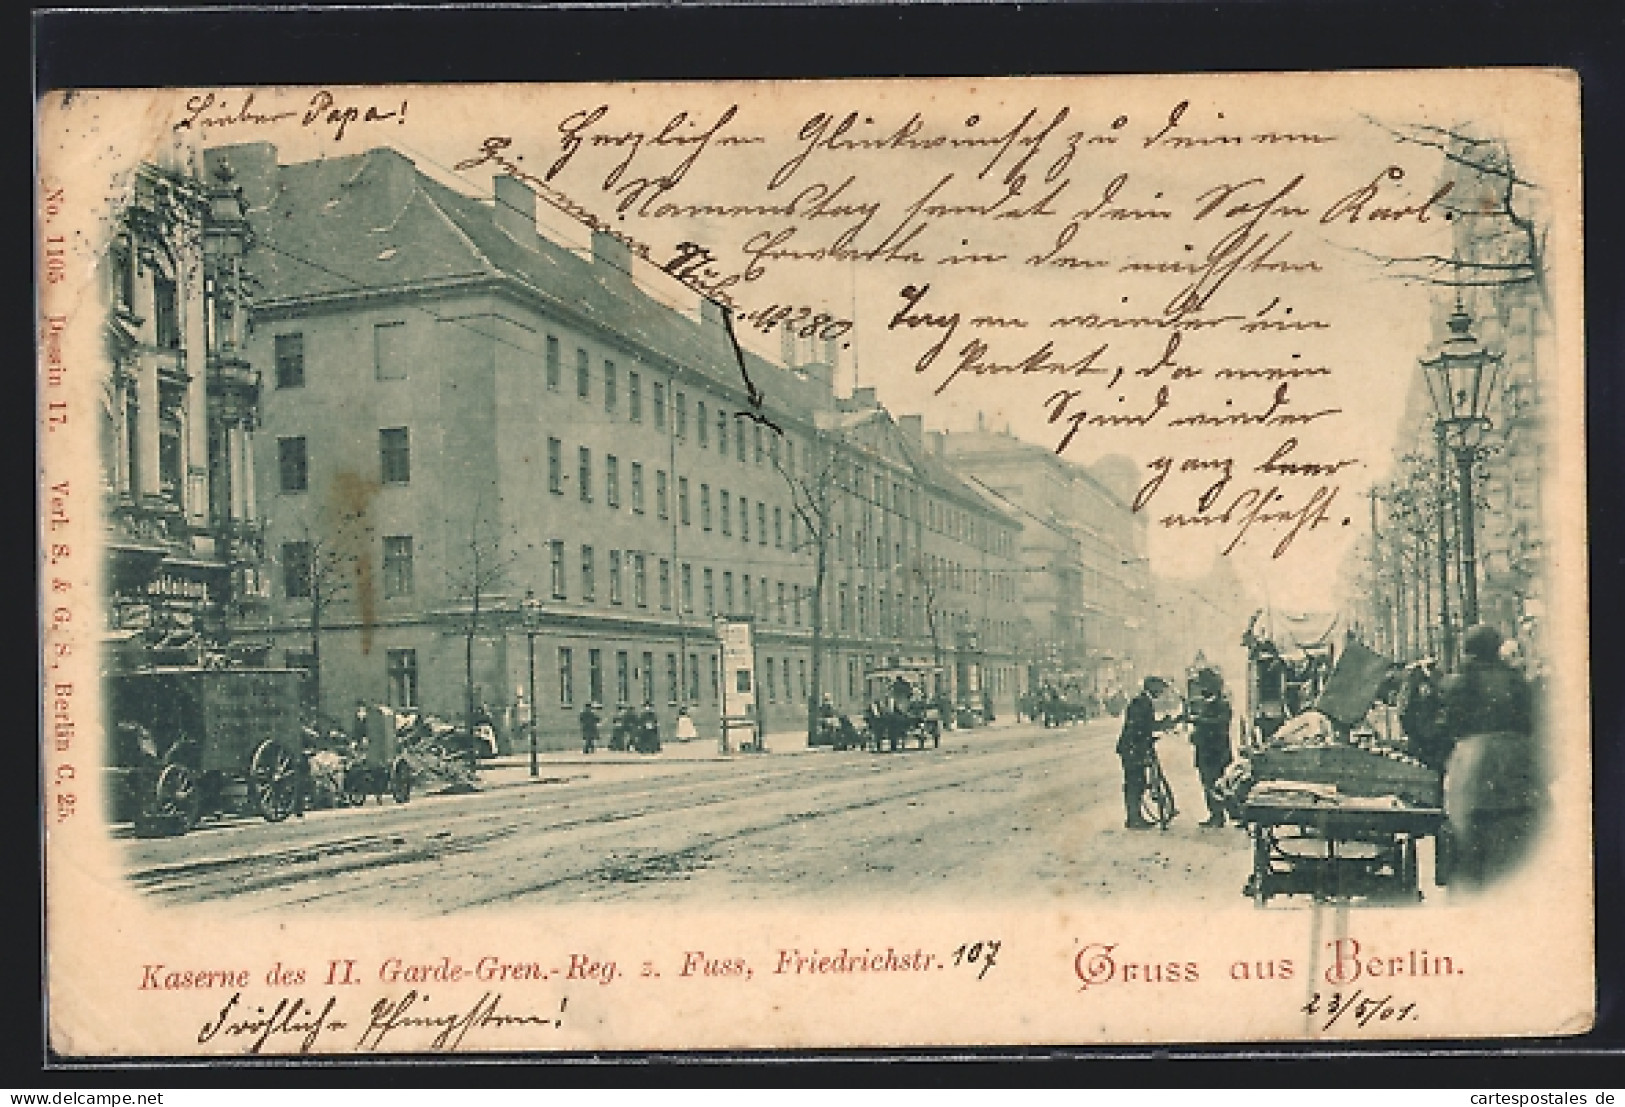 Lieber Papa!
Herzlichen Glückwunsch zu deinem
Namenstag sendet dein Sohn Karl.
Erwarte in den nächsten
Tagen wieder ein
Packet, da mein
Spind wieder
ganz leer
aussieht.
Stube 280.
No. 1105 Dessin 17. Verl. S. & G. S., Berlin C. 25.
Kaserne des II. Garde-Gren.-Reg. z. Fuss, Friedrichstr. 107
Gruss aus Berlin.
23/5/01.
Fröhliche Pfingsten!
cartespostales de